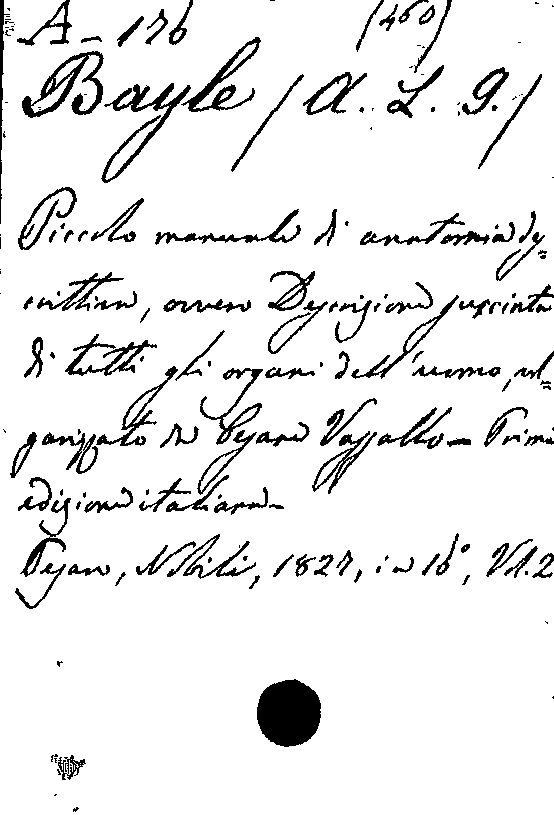 A - 176 (460)
Bayle (A. L. J.)
Piccolo manuale di anatomia des=
crittiva, ovvero Descrizione succinta
di tutti gli organi dell'uomo, vol=
garizzato da Cesare Vassallo - Prima
edizione italiana -
Pesaro, Nobili, 1827, in 16°, Vol. 2